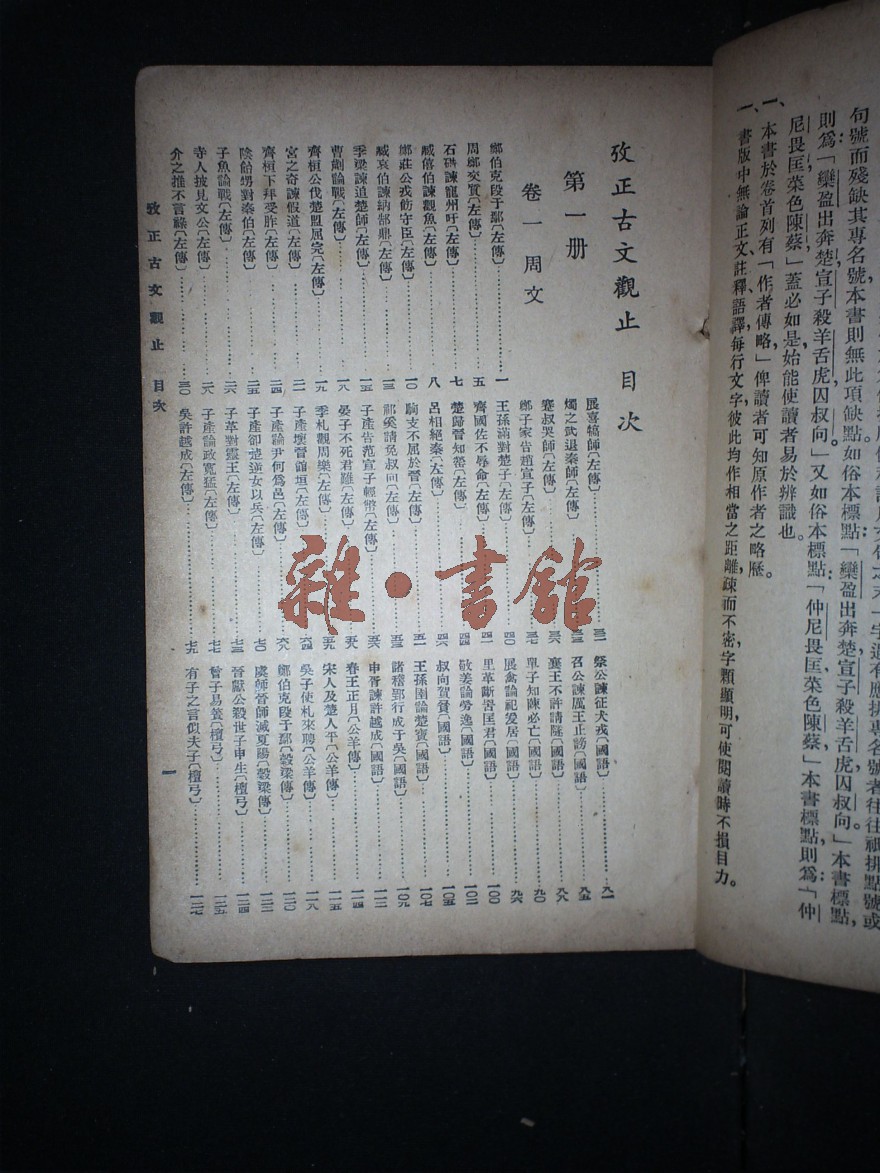 字遇有應排專名號者往往祇排點號或
句號而殘缺其專名號本書則無此項缺點如俗本標點「欒盈出奔楚宣子殺羊舌虎囚叔向」本書標點
則爲「欒盈出奔楚,宣子殺羊舌虎囚叔向。」又如俗本標點「仲尼畏匡菜色陳蔡」本書標點則爲「仲
尼畏匡菜色陳蔡」蓋必如是始能使讀者易於辨識也。
一、本書於卷首列有「作者傳略」俾讀者可知原作者之略歷。
一、書版中無論正文、註釋、語譯,每行文字彼此均作相當之距離疏而不密,字顆顯明,可使閱讀時不損目力。
攷正古文觀止 目次
第一册
卷一周文
鄭伯克段于鄢〔左傳〕 一
周鄭交質〔左傳〕 五
石碏諫寵州吁〔左傳〕 七
臧僖伯諫觀魚〔左傳〕 八
鄭莊公戎飭守臣〔左傳〕 一〇
臧哀伯諫納郜鼎〔左傳〕 一三
季梁諫追楚師〔左傳〕 一五
曹劌論戰〔左傳〕 一八
齊桓公伐楚盟屈完〔左傳〕 一九
宮之奇諫假道〔左傳〕 二一
齊桓下拜受胙〔左傳〕 二四
陰飴甥對秦伯〔左傳〕 二五
子魚論戰〔左傳〕 二六
寺人披見文公〔左傳〕 二八
介之推不言祿〔左傳〕 三〇
展喜犒師〔左傳〕
燭之武退秦師〔左傳〕
蹇叔哭師〔左傳〕
鄭子家告趙宣子〔左傳〕 三七
王孫滿對楚子〔左傳〕 四〇
齊國佐不辱命〔左傳〕 四一
楚歸晉知罃〔左傳〕 四四
呂相絕秦〔左傳〕 四六
駒支不屈於晉〔左傳〕 五一
祁奚請免叔向〔左傳〕 五三
子產告范宣子輕幣〔左傳〕
晏子不死君難〔左傳〕
季札觀周樂〔左傳〕 五九
子產壞晉館垣〔左傳〕 六四
子產論尹何爲邑〔左傳〕 六八
子產卻楚逆女以兵〔左傳〕 七〇
子革對靈王〔左傳〕 七三
子產論政寬猛〔左傳〕 七七
吳許越成〔左傳〕 七九
祭公諫征犬戎〔國語〕
召公諫厲王止謗〔國語〕 八五
襄王不許請隧〔國語〕
單子知陳必亡〔國語〕 九〇
展禽論祀爰居〔國語〕 九六
里革斷罟匡君〔國語〕 一〇〇
敬姜論勞逸〔國語〕 一〇二
叔向賀貧〔國語〕 一〇五
王孫圉論楚寶〔國語〕 一〇七
諸稽郢行成于吳〔國語〕 一〇九
申胥諫許越成〔國語〕 一一二
春王正月〔公羊傳〕 一一四
宋人及楚人平〔公羊傳〕 一一五
吳子使札來聘〔公羊傳〕 一一八
鄭伯克段于鄢〔穀梁傳〕 一二〇
虞師晉師滅夏陽〔穀梁傳〕 一二二
晉獻公殺世子申生〔檀弓〕 一二四
曾子易簀〔檀弓〕 一二五
有子之言似夫子〔檀弓〕 一二七
攷正古文觀止 目次
一
雜·書館